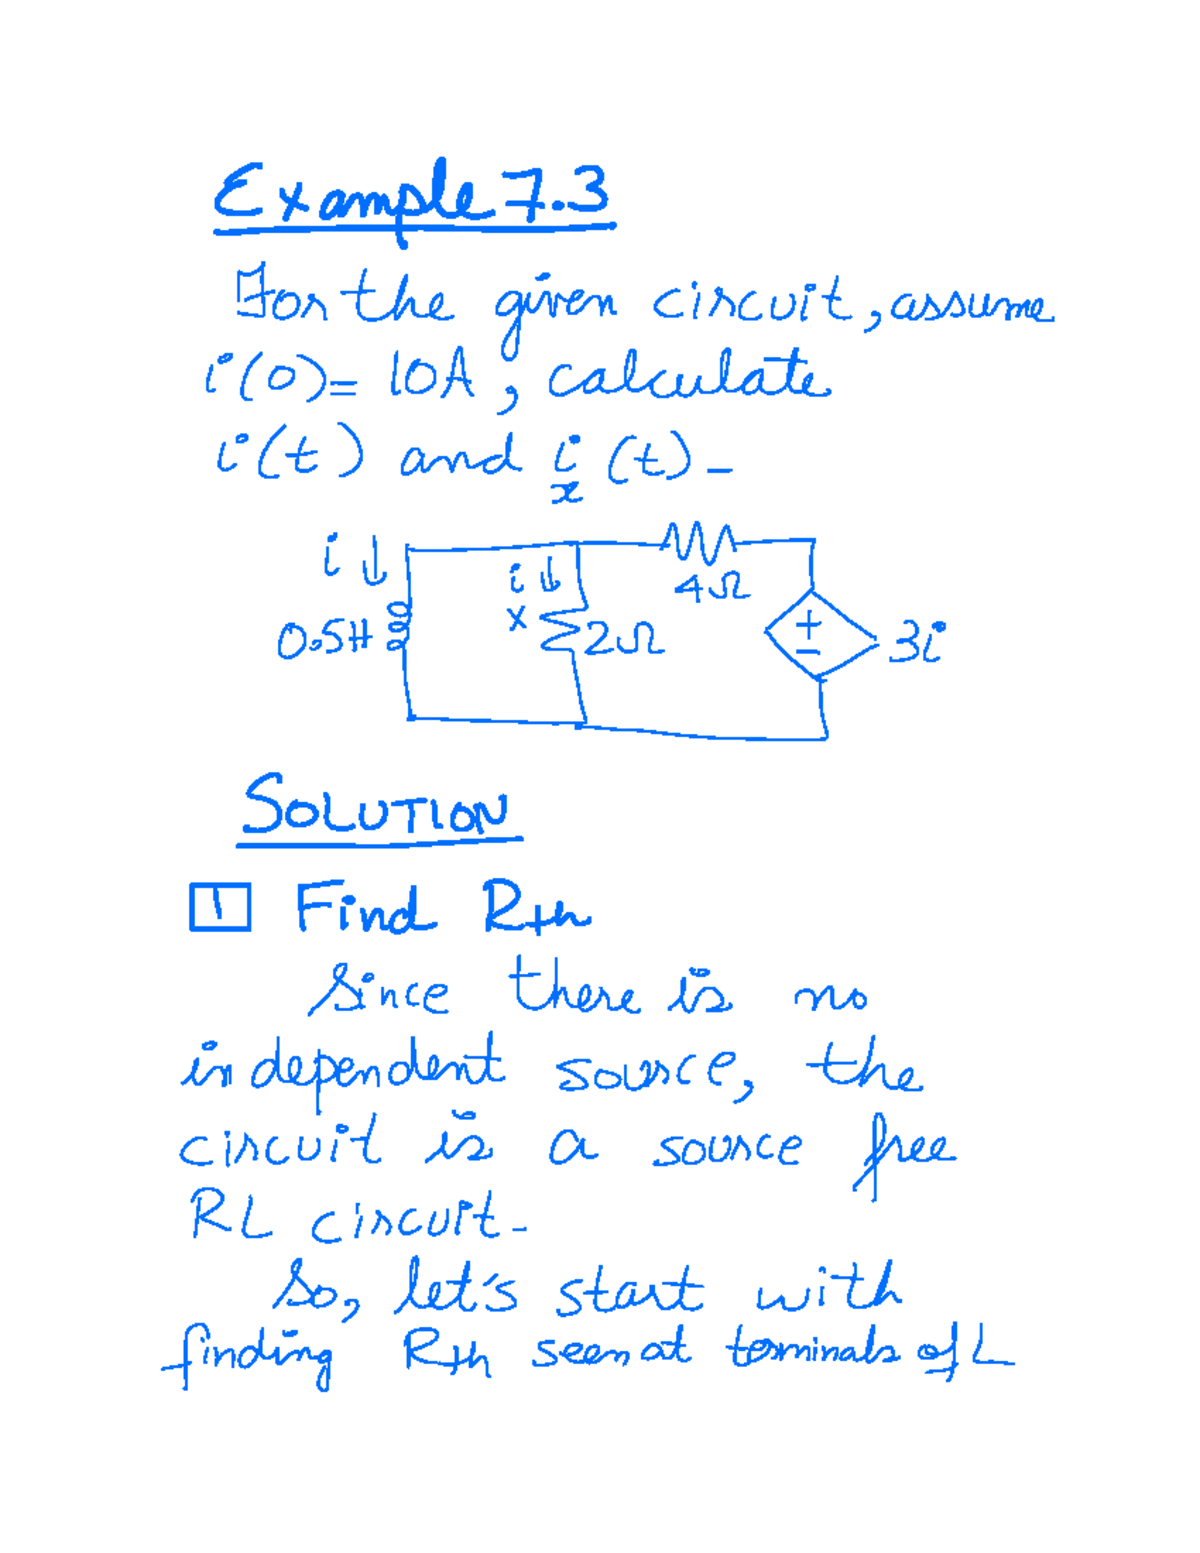 Example 7.3
For the given circuit, assume
i(0)= 10A, calculate
i(t) and ix(t)-
i ↓
0.5H
i ↓
x
2Ω
4Ω
+
-
3i
SOLUTION
1 Find Rth
Since there is no
independent source, the
circuit is a source free
RL circuit-
So, let's start with
finding Rth seen at terminals of L